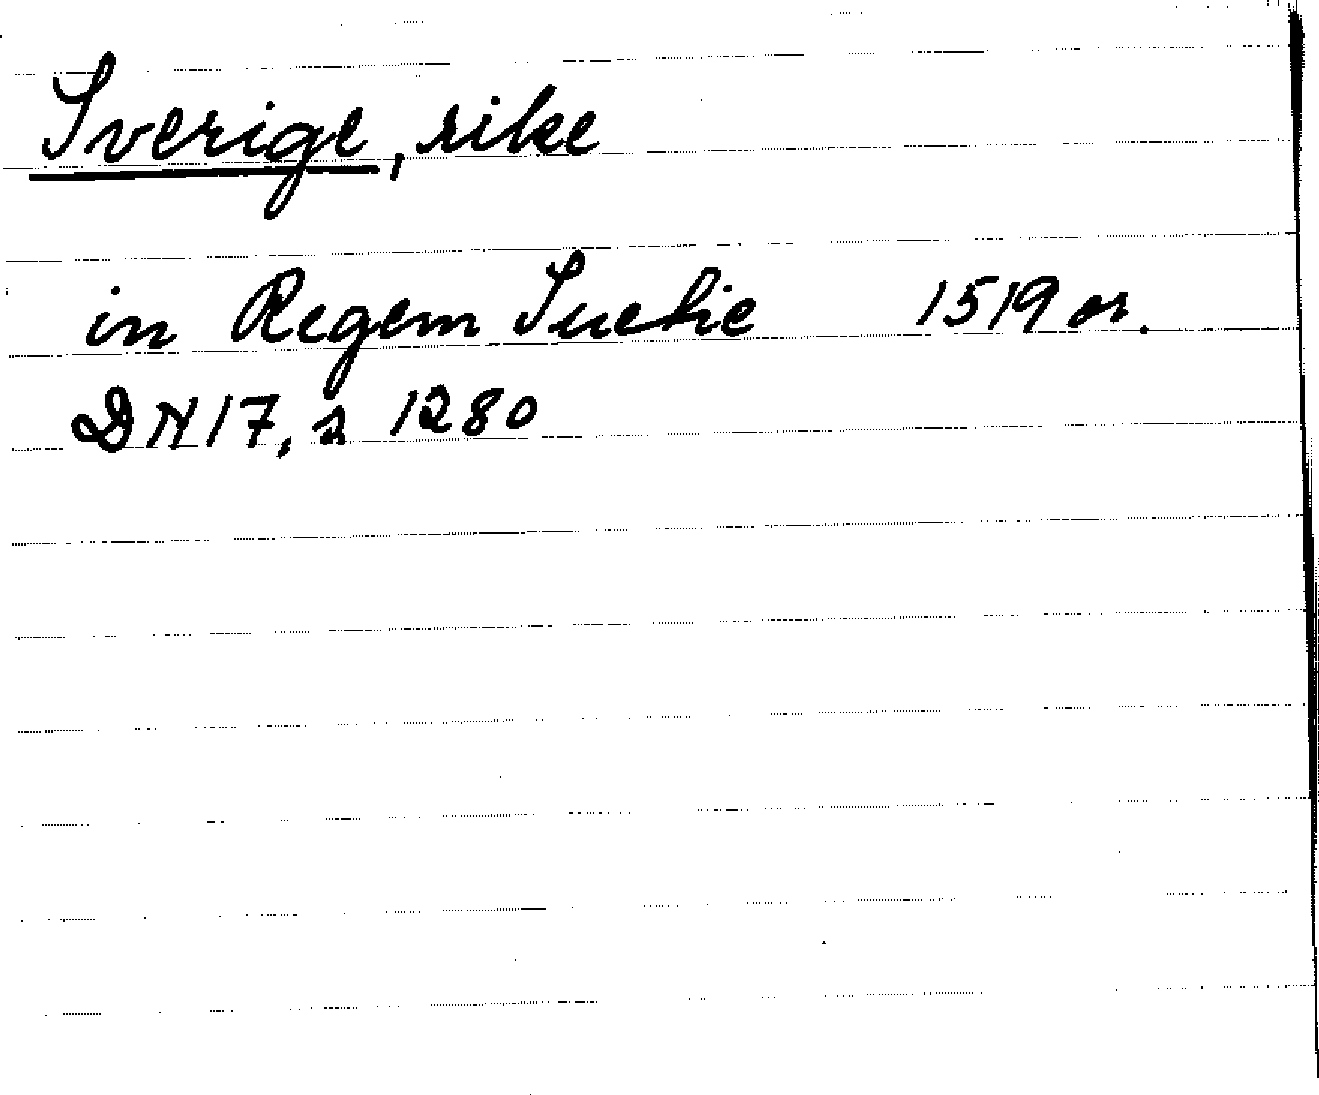 Sverige, rike
in Regem Suetie 1519 or.
DN 17, s 1280